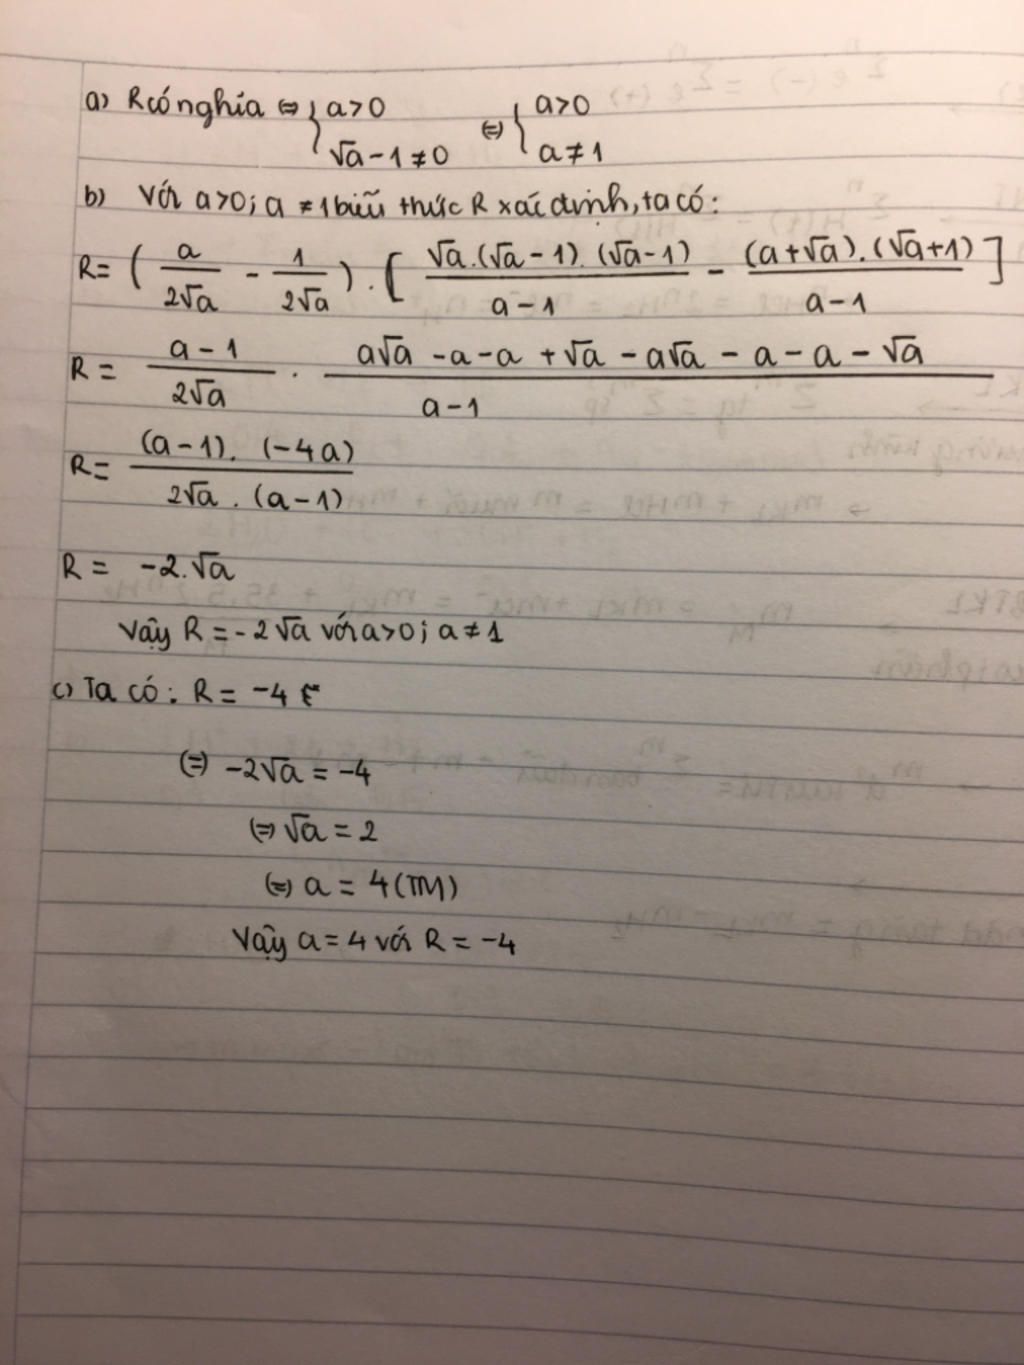 a) R có nghĩa ⇔ { a>0 ; √a - 1 ≠ 0 ⇔ { a>0 ; a ≠ 1
b) Với a>0; a ≠ 1 biểu thức R xác định, ta có:
R = ( a/2√a - 1/2√a ) . [ √a.(√a - 1).(√a - 1)/a - 1 - (a+√a).(√a+1)/a - 1 ]
R = a - 1/2√a . a√a - a - a + √a - a√a - a - a - √a/a - 1
R = (a - 1). (-4a)/2√a . (a - 1)
R = -2.√a
Vậy R = -2√a với a>0; a ≠ 1
c) Ta có: R = -4
⇔ -2√a = -4
⇔ √a = 2
⇔ a = 4 (TM)
Vậy a = 4 với R = -4